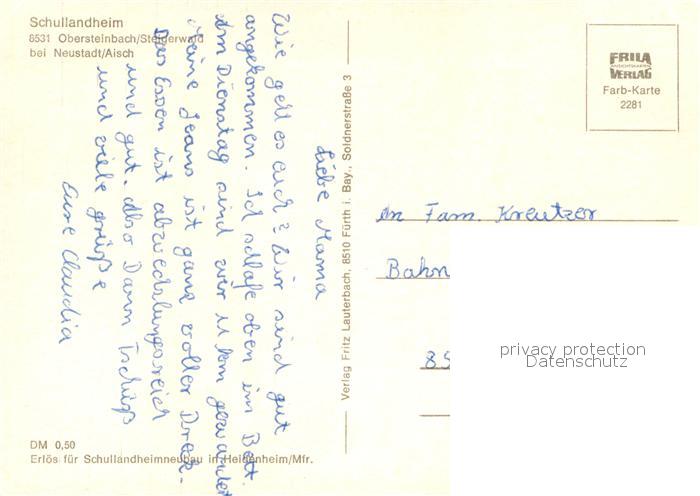 Schullandheim
8531 Obersteinbach/Steigerwald
bei Neustadt/Aisch
Liebe Mama
Wie geht es euch? Wir sind gut
angekommen. Ich schlafe oben im Bett.
Am Dienstag sind wir 11 km gewandert
Meine Jeans ist ganz voller Dreck.
Das Essen ist abwechslungsreich
und gut. Also Dann Tschüß
und viele grüße
Eure Claudia
DM 0,50
Erlös für Schullandheimneubau in Heidenheim/Mfr.
Verlag Fritz Lauterbach, 8510 Fürth i. Bay., Soldnerstraße 3
FRILA
ANSICHTSKARTEN
VERLAG
Farb-Karte
2281
An Fam. Kreutzer
Bahn
85
privacy protection
Datenschutz